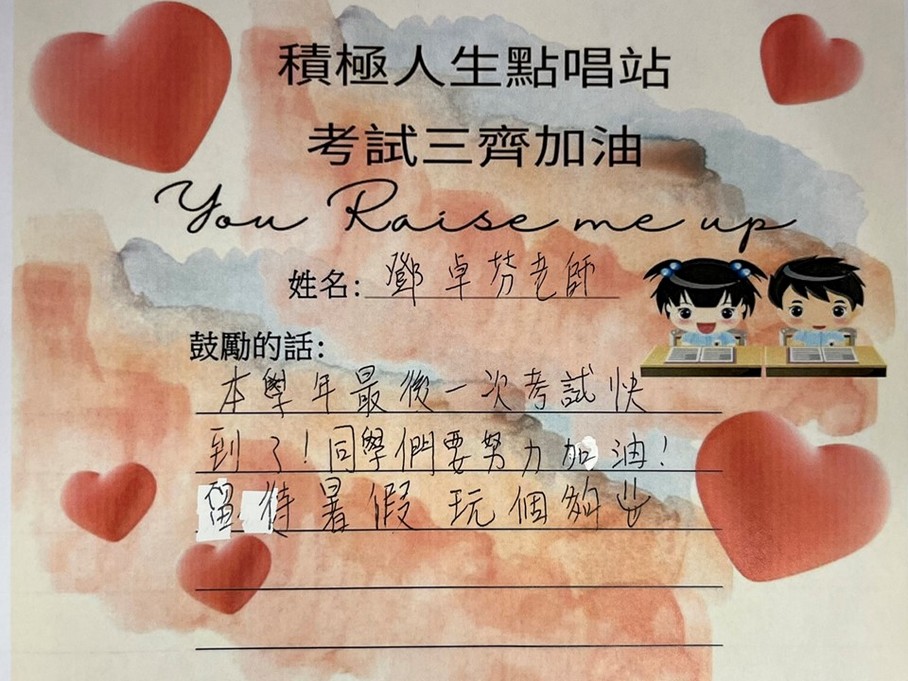 積極人生點唱站
考試三齊加油
You Raise me up
姓名：鄧卓芬老師
鼓勵的話：
本學年最後一次考試快
到了！同學們要努力加油！
留待暑假玩個夠